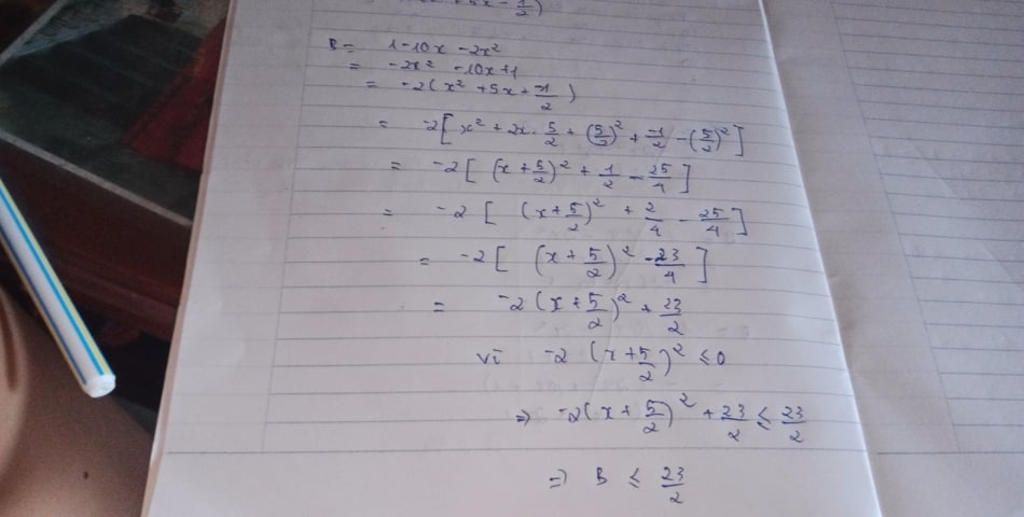 B = 1 - 10x - 2x²
= -2x² - 10x + 1
= -2(x² + 5x + -1/2)
= -2[x² + 2x . 5/2 + (5/2)² + -1/2 - (5/2)²]
= -2[(x + 5/2)² + 1/2 - 25/4]
= -2[(x + 5/2)² + 2/4 - 25/4]
= -2[(x + 5/2)² - 23/4]
= -2(x + 5/2)² + 23/2
vì -2(x + 5/2)² ≤ 0
=> -2(x + 5/2)² + 23/2 ≤ 23/2
=> B ≤ 23/2